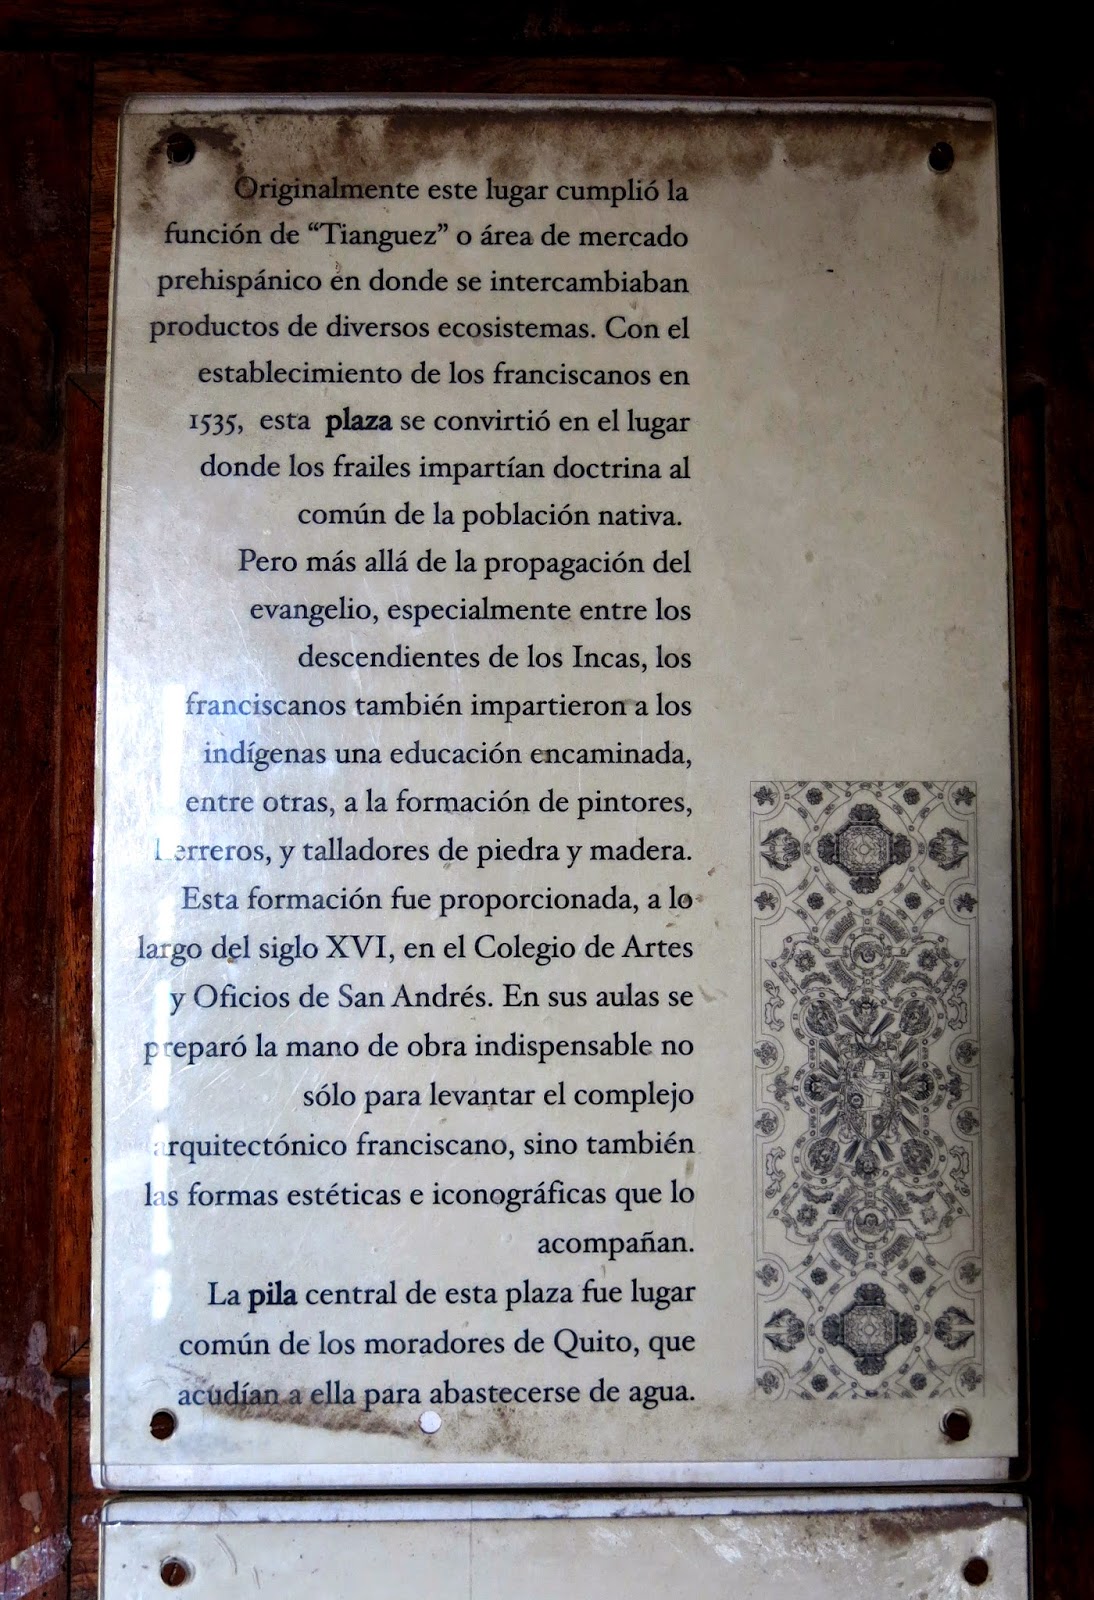 Originalmente este lugar cumplió la
función de “Tianguez” o área de mercado
prehispánico en donde se intercambiaban
productos de diversos ecosistemas. Con el
establecimiento de los franciscanos en
1535, esta plaza se convirtió en el lugar
donde los frailes impartían doctrina al
común de la población nativa.
Pero más allá de la propagación del
evangelio, especialmente entre los
descendientes de los Incas, los
franciscanos también impartieron a los
indígenas una educación encaminada,
entre otras, a la formación de pintores,
herreros, y talladores de piedra y madera.
Esta formación fue proporcionada, a lo
largo del siglo XVI, en el Colegio de Artes
y Oficios de San Andrés. En sus aulas se
preparó la mano de obra indispensable no
sólo para levantar el complejo
arquitectónico franciscano, sino también
las formas estéticas e iconográficas que lo
acompañan.
La pila central de esta plaza fue lugar
común de los moradores de Quito, que
acudían a ella para abastecerse de agua.